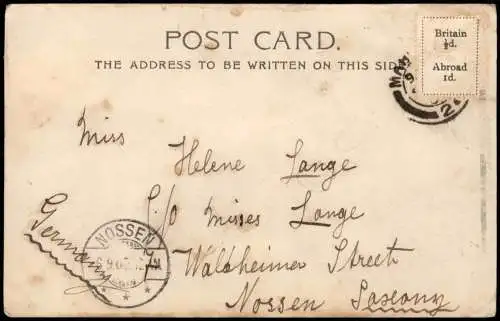 POST CARD.
THE ADDRESS TO BE WRITTEN ON THIS SID
Britain
½d.
Abroad
1d.
MA
Miss
Helene Lange
C/o Misses Lange
Waldheimer Street
Nossen Saxony
Germany
NOSSEN